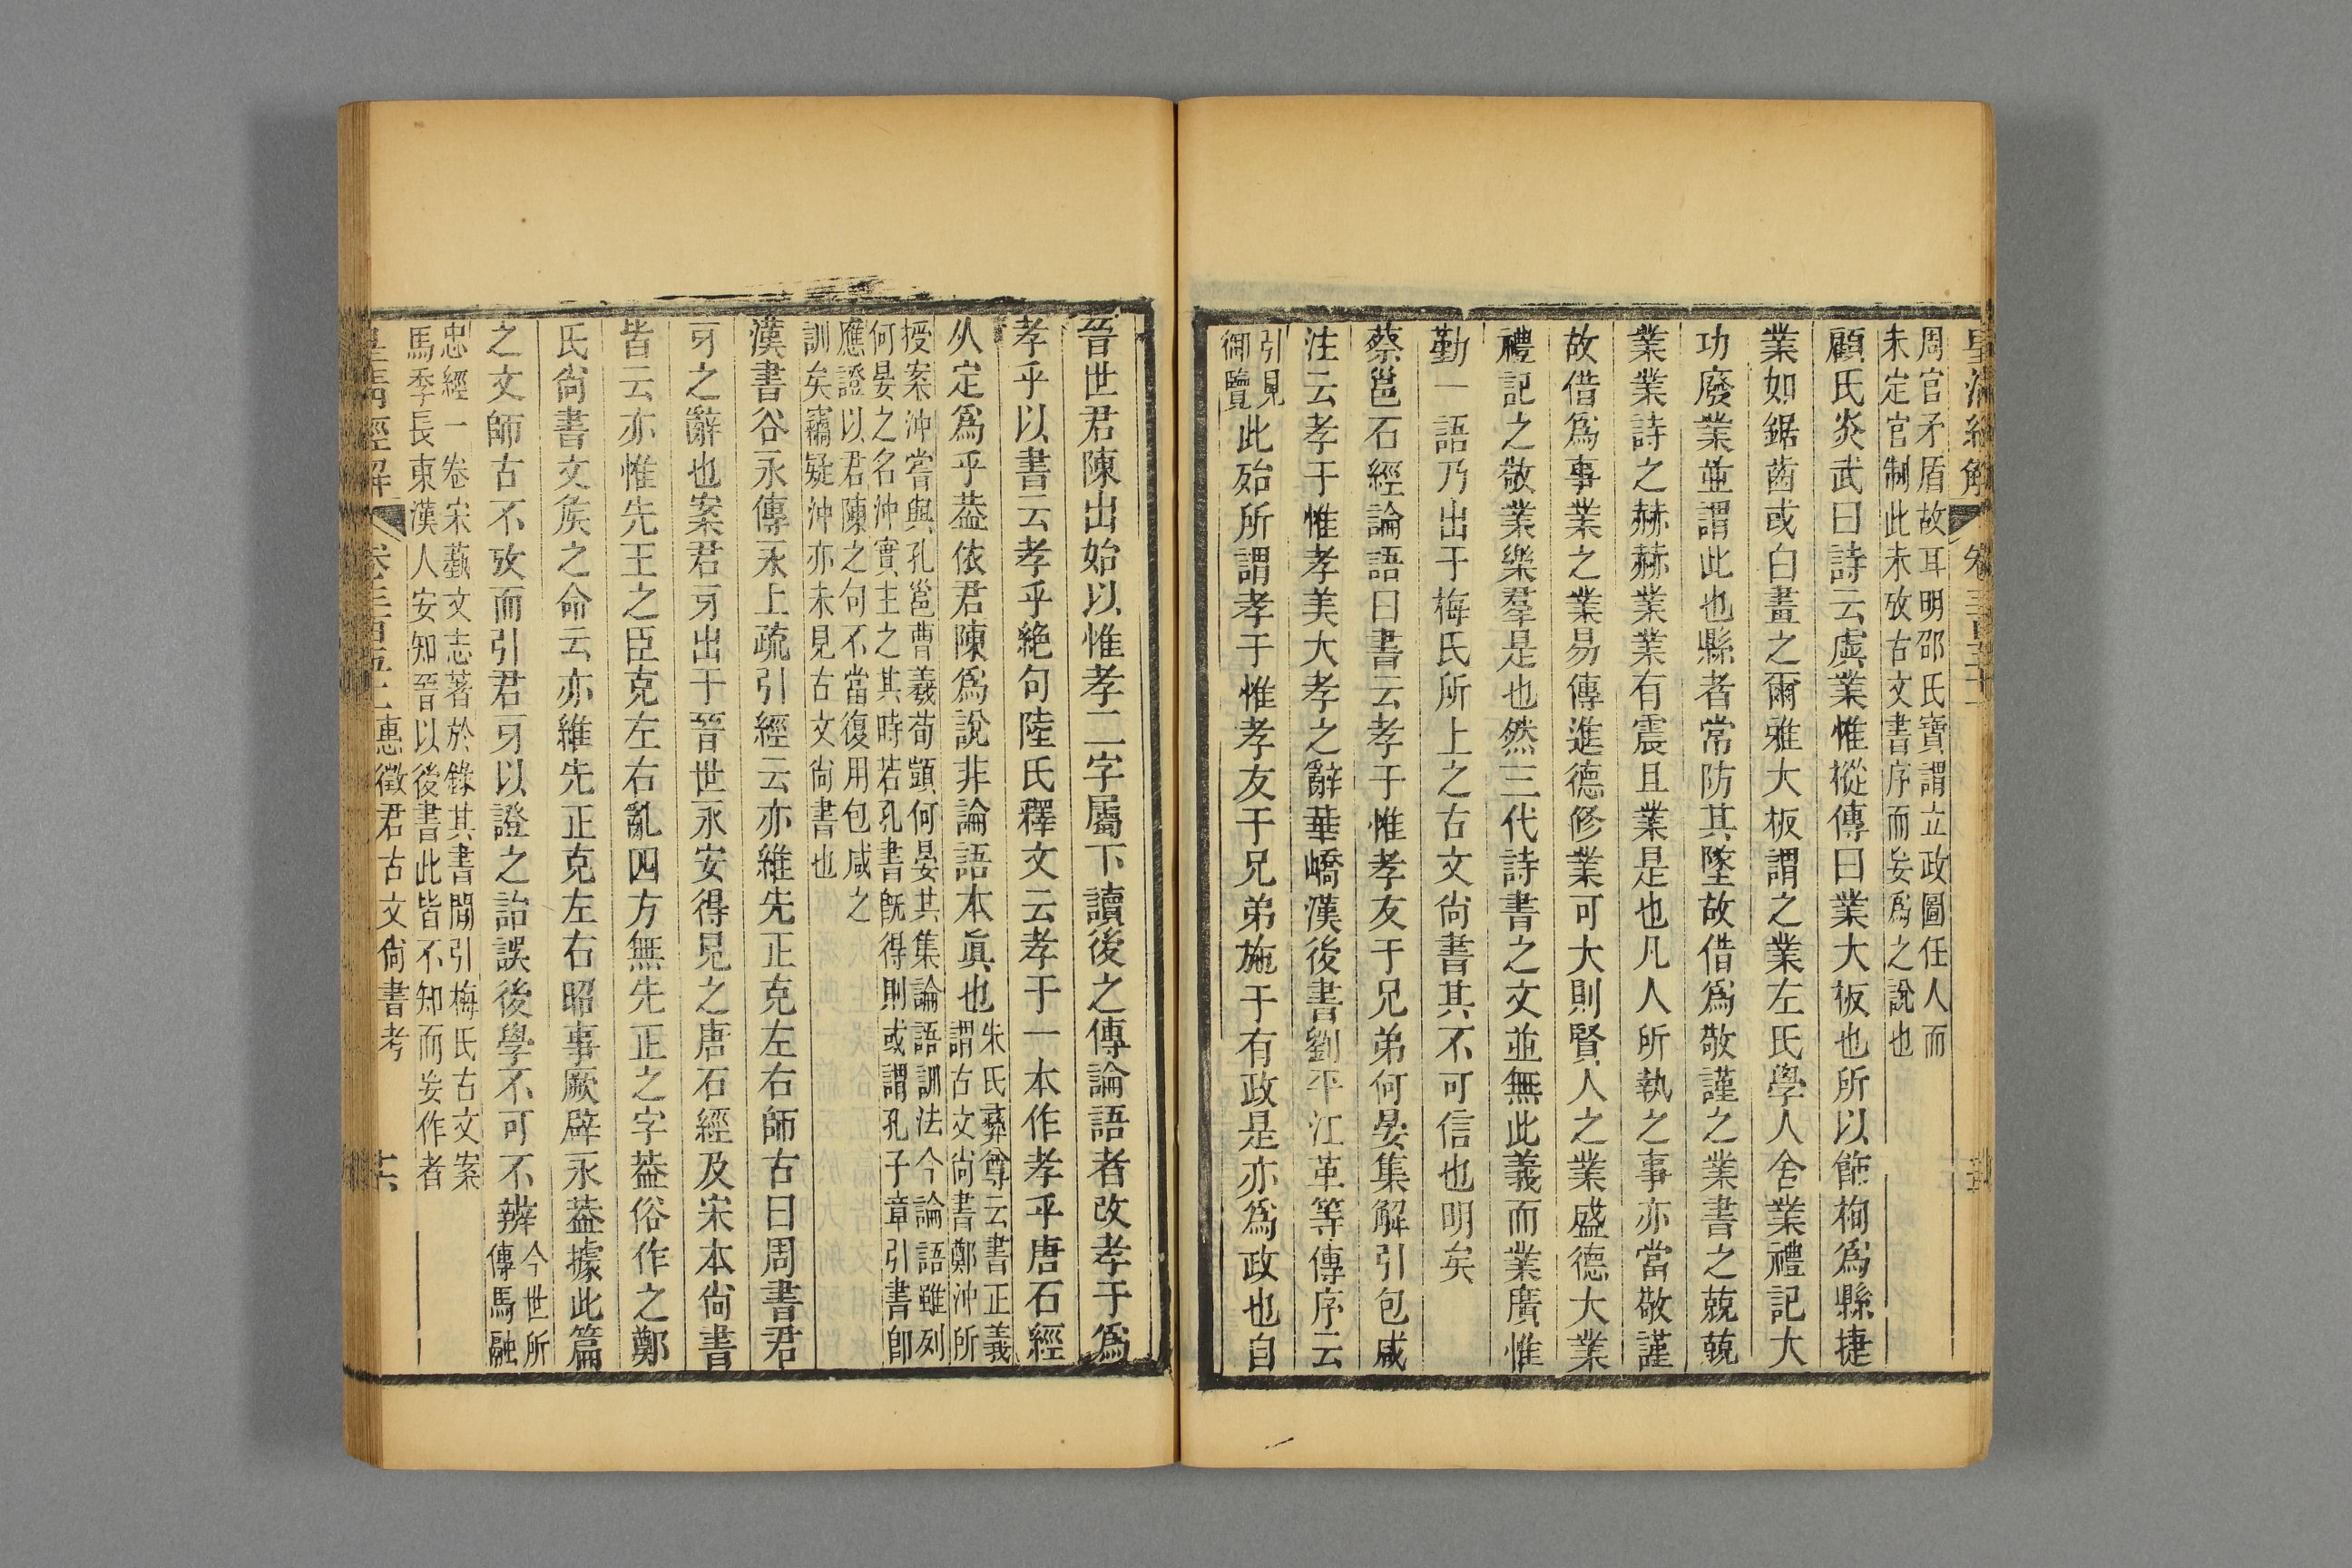 皇清經解 卷三百五十二
周官矛盾故耳明邵氏寶謂立政圖任人而
未定官制此未攷古文書序而妄爲之說也
顧氏炎武曰詩云虡業惟樅傳曰業大板也所以飾栒爲縣捷
業如鋸齒或白畫之爾雅大板謂之業左氏學人舍業禮記大
功廢業並謂此也縣者常防其墜故借爲敬謹之業書之兢兢
業業詩之赫赫業業有震且業是也凡人所執之事亦當敬謹
故借爲事業之業易傳進德修業可大則賢人之業盛德大業
禮記之敬業樂羣是也然三代詩書之文並無此義而業廣惟
勤一語乃出于梅氏所上之古文尙書其不可信也明矣
蔡邕石經論語曰書云孝于惟孝友于兄弟何晏集解引包咸
注云孝于惟孝美大孝之辭華嶠漢後書劉平江革等傳序云
引見
御覽
此殆所謂孝于惟孝友于兄弟施于有政是亦爲政也自
晉世君陳出始以惟孝二字屬下讀後之傳論語者改孝于爲
孝乎以書云孝乎絶句陸氏釋文云孝于一本作孝乎唐石經
从定爲乎葢依君陳爲說非論語本眞也
朱氏彝尊云書正義
謂古文尙書鄭沖所
授案沖嘗與孔邕曹羲荀顗何晏其集論語訓法今論語雖列
何晏之名沖實主之其時若孔書旣得則或謂孔子章引書卽
應證以君陳之句不當復用包咸之
訓矣竊疑沖亦未見古文尙書也
漢書谷永傳永上疏引經云亦維先正克左右師古曰周書君
牙之辭也案君牙出于晉世永安得見之唐石經及宋本尙書
皆云亦惟先王之臣克左右亂四方無先正之字葢俗作之鄭
氏尙書文矦之命云亦維先正克左右昭事厥辟永葢據此篇
之文師古不攷而引君牙以證之詒誤後學不可不辨
今世所
傳馬融
忠經一卷宋藝文志著於錄其書間引梅氏古文案
馬季長東漢人安知晉以後書此皆不知而妄作者
皇清經解 卷三百五十二 惠徵君古文尙書考 六